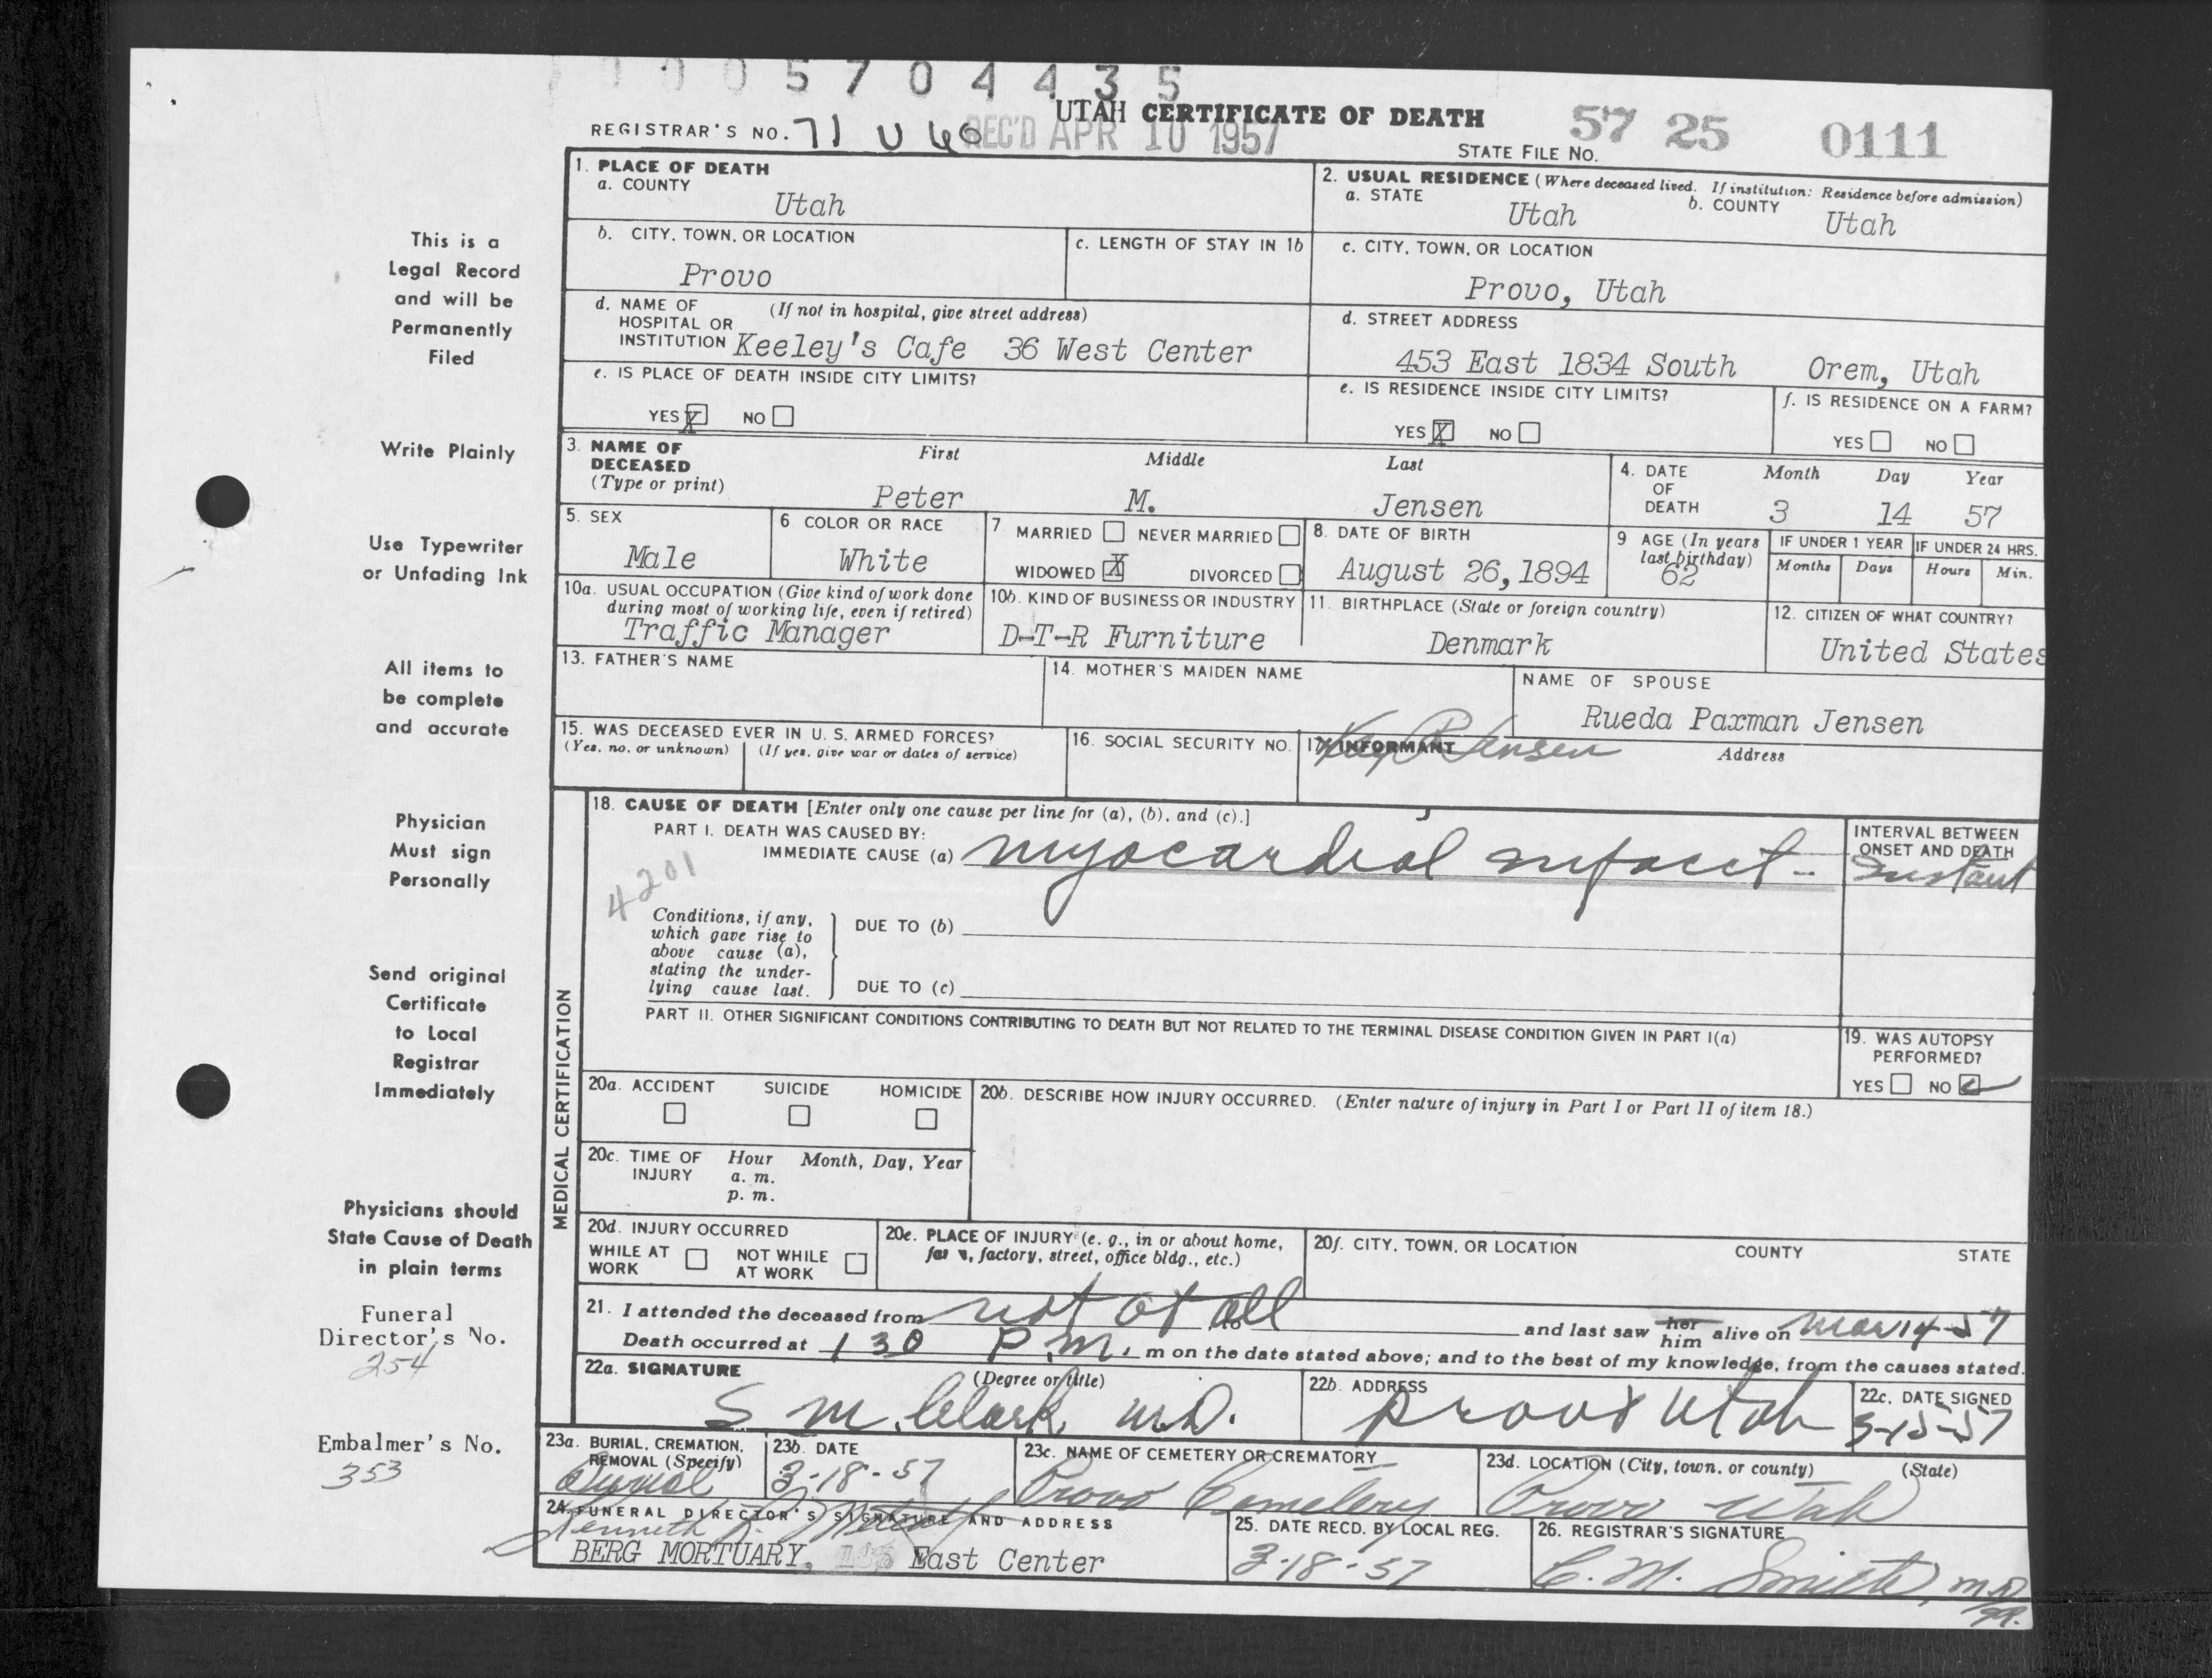 0005704435
UTAH CERTIFICATE OF DEATH
REGISTRAR'S NO. 71 U 40
REC'D APR 10 1957
STATE FILE NO. 57 25 0111
This is a
Legal Record
and will be
Permanently
Filed
Write Plainly
Use Typewriter
or Unfading Ink
All items to
be complete
and accurate
Physician
Must sign
Personally
Send original
Certificate
to Local
Registrar
Immediately
Physicians should
State Cause of Death
in plain terms
Funeral
Director's No.
254
Embalmer's No.
353
1. PLACE OF DEATH
a. COUNTY
Utah
2. USUAL RESIDENCE (Where deceased lived. If institution: Residence before admission)
a. STATE
Utah
b. COUNTY
Utah
b. CITY, TOWN, OR LOCATION
Provo
c. LENGTH OF STAY IN 1b
c. CITY, TOWN, OR LOCATION
Provo, Utah
d. NAME OF (If not in hospital, give street address)
HOSPITAL OR
INSTITUTION Keeley's Cafe 36 West Center
d. STREET ADDRESS
453 East 1834 South Orem, Utah
e. IS PLACE OF DEATH INSIDE CITY LIMITS?
YES X NO
e. IS RESIDENCE INSIDE CITY LIMITS?
YES X NO
f. IS RESIDENCE ON A FARM?
YES NO
3. NAME OF
DECEASED
(Type or print)
First Middle Last
Peter M. Jensen
4. DATE
OF
DEATH
Month Day Year
3 14 57
5. SEX
Male
6. COLOR OR RACE
White
7. MARRIED NEVER MARRIED
WIDOWED X DIVORCED
8. DATE OF BIRTH
August 26, 1894
9 AGE (In years
last birthday)
62
IF UNDER 1 YEAR
Months Days
IF UNDER 24 HRS.
Hours Min.
10a. USUAL OCCUPATION (Give kind of work done
during most of working life, even if retired)
Traffic Manager
10b. KIND OF BUSINESS OR INDUSTRY
D-T-R Furniture
11. BIRTHPLACE (State or foreign country)
Denmark
12. CITIZEN OF WHAT COUNTRY?
United States
13. FATHER'S NAME
14. MOTHER'S MAIDEN NAME
NAME OF SPOUSE
Rueda Paxman Jensen
15. WAS DECEASED EVER IN U. S. ARMED FORCES?
(Yes, no, or unknown) (If yes, give war or dates of service)
16. SOCIAL SECURITY NO.
17. INFORMANT
Jensen
Address
MEDICAL CERTIFICATION
18. CAUSE OF DEATH [Enter only one cause per line for (a), (b), and (c).]
PART I. DEATH WAS CAUSED BY:
IMMEDIATE CAUSE (a) myocardial infarct
4201
INTERVAL BETWEEN
ONSET AND DEATH
Instant
Conditions, if any,
which gave rise to
above cause (a),
stating the under-
lying cause last.
DUE TO (b)
DUE TO (c)
PART II. OTHER SIGNIFICANT CONDITIONS CONTRIBUTING TO DEATH BUT NOT RELATED TO THE TERMINAL DISEASE CONDITION GIVEN IN PART I(a)
19. WAS AUTOPSY
PERFORMED?
YES NO ✓
20a. ACCIDENT SUICIDE HOMICIDE
20b. DESCRIBE HOW INJURY OCCURRED. (Enter nature of injury in Part I or Part II of item 18.)
20c. TIME OF
INJURY
Hour Month, Day, Year
a. m.
p. m.
20d. INJURY OCCURRED
WHILE AT
WORK
NOT WHILE
AT WORK
20e. PLACE OF INJURY (e. g., in or about home,
factory, street, office bldg., etc.)
20f. CITY, TOWN, OR LOCATION COUNTY STATE
21. I attended the deceased from not at all to and last saw her him alive on Mar 14 57
Death occurred at 1 30 P.M. m on the date stated above; and to the best of my knowledge, from the causes stated.
22a. SIGNATURE (Degree or title)
S M. Clark M.D.
22b. ADDRESS
Provo Utah
22c. DATE SIGNED
3-15-57
23a. BURIAL, CREMATION,
REMOVAL (Specify)
Burial
23b. DATE
3-18-57
23c. NAME OF CEMETERY OR CREMATORY
Provo Cemetery
23d. LOCATION (City, town, or county) (State)
Provo Utah
24. FUNERAL DIRECTOR'S SIGNATURE AND ADDRESS
Kenneth
BERG MORTUARY, East Center
25. DATE RECD. BY LOCAL REG.
3-18-57
26. REGISTRAR'S SIGNATURE
C. M. Smith, M.D.